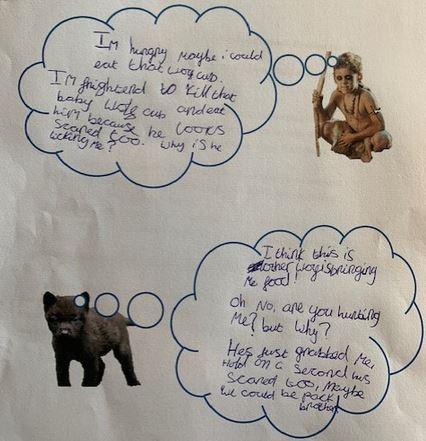 I'm hungry maybe i could
eat that wolf cub.
I'm frightend to kill that
baby wolf cub and eat
him because he looks
scared too. Why is he
licking me?
I think this is
other wolf is bringing
me food!
Oh No, are you hunting
Me? but why?
He's just grabbed me,
Hold on a second his
scared too, Maybe
we could be pack
brothers